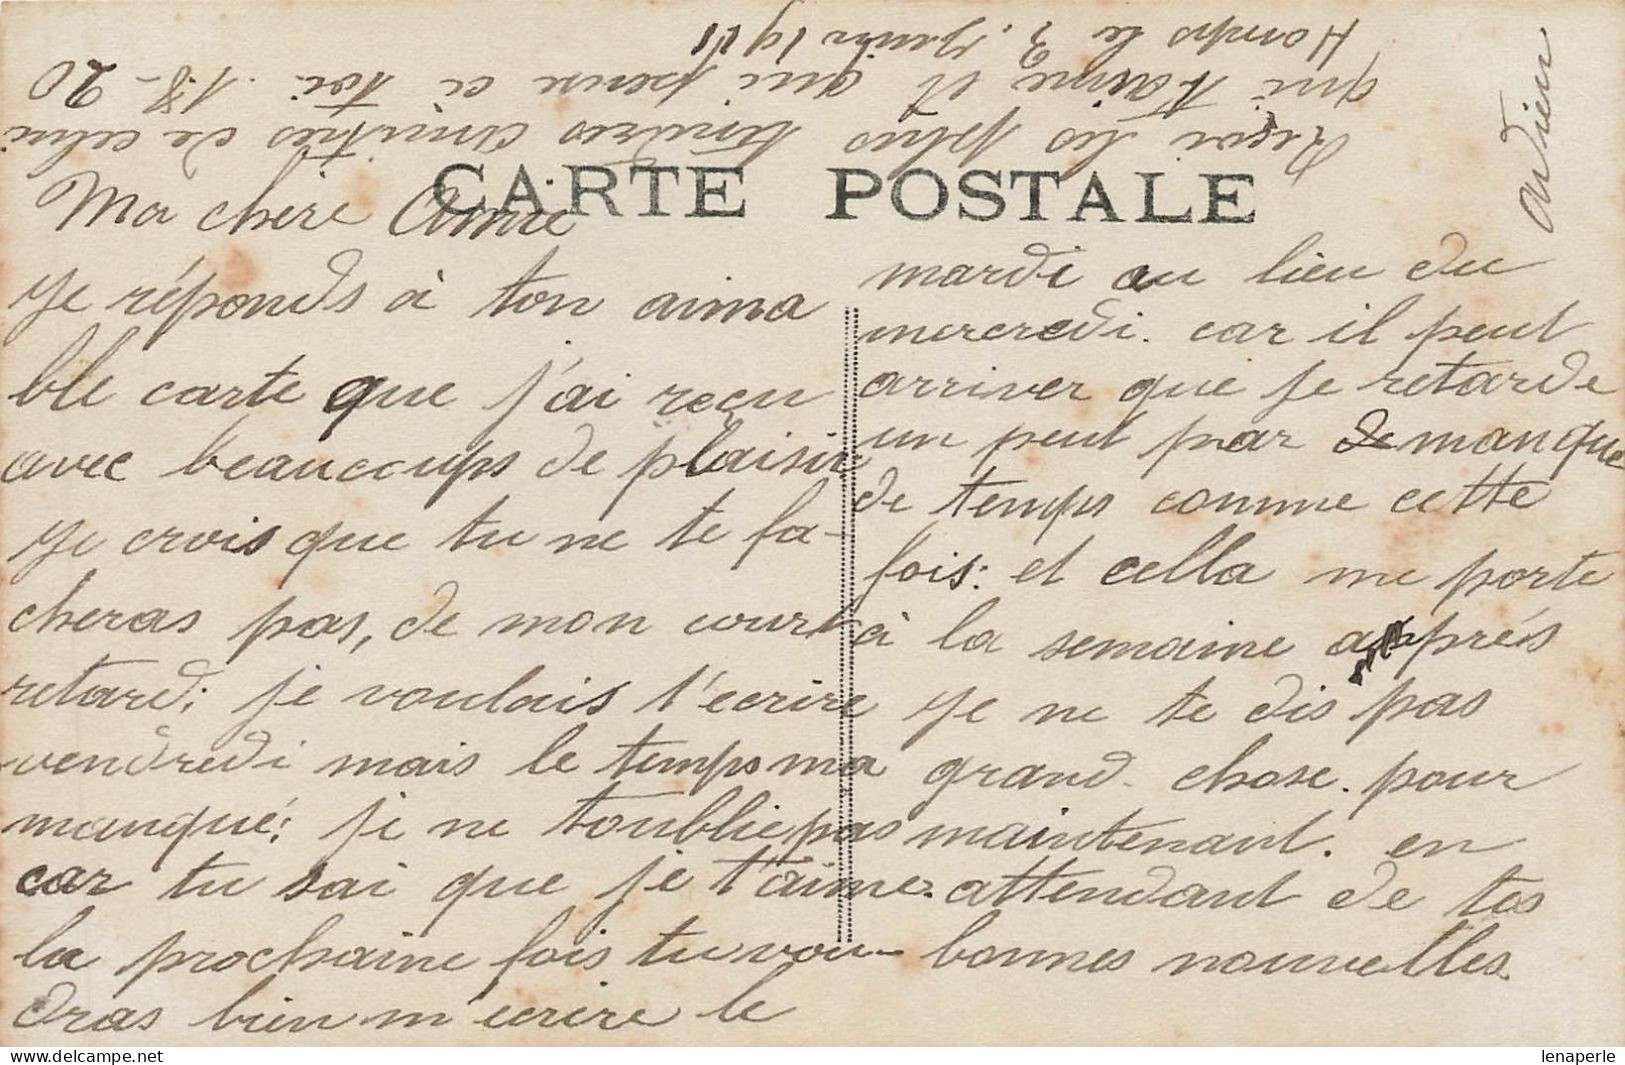 CARTE POSTALE
Ma chère Amie
Je réponds à ton aima
ble carte que j'ai reçu
avec beaucoups de plaisir
Je crois que tu ne te fa-
cheras pas, de mon court
retard; je voulais t'ecrire
vendredi mais le temps ma
manqué; je ne t'oublie pas
car tu sai que je t'aime.
la prochaine fois tu vou-
dras bien m'ecrire le
mardi au lieu du
mercredi. car il peut
arriver que je retarde
un peut par de manque
de temps comme cette
fois: et cella me porte
à la semaine apprés
Je ne te dis pas
grand chose. pour
maintenant. en
attendant de tes
bonnes nouvelles.
Reçoi les plus tendres amitiés de celui
qui t'aime et qui pense à toi. 18-20
Homps le 3, 1911
Adrien
lenaperle